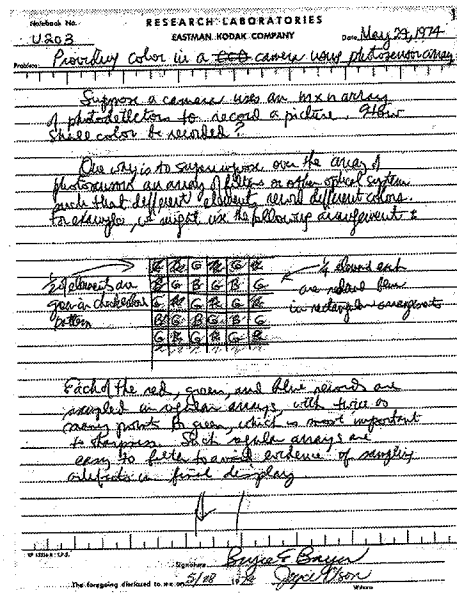 Notebook No. RESEARCH LABORATORIES
U203 EASTMAN KODAK COMPANY Date May 29, 1974
Problem: Providing color in a camera using photosensor array
Suppose a camera uses an m x n array
of photodetectors to record a picture. How
shall color be recorded?
One way is to superimpose over the array of
photosensors an array of filters or other optical system
such that different elements record different colors.
For example, we might use the following arrangement:
1/2 of elements are
green in checkerboard
pattern
G R G R G R
B G B G B G
G R G R G R
B G B G B G
G R G R G R
1/4 elements each
are red and blue
in rectangular arrangements
Each of the red, green, and blue records are
sampled in regular arrays, with twice as
many points for green, which is most important
to sharpness. Such regular arrays are
easy to filter to avoid evidence of sampling
artifacts in final display
Signature Bryce E Bayer
The foregoing disclosed to me on 5/28 1974 Joyce Olson
Witness